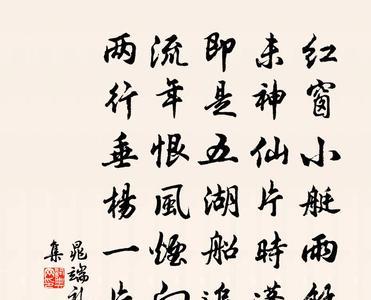 红窗小艇雨
来神仙片时
即是五湖船追
流年恨風煙向
两行垂楊一片
晁端礼
集